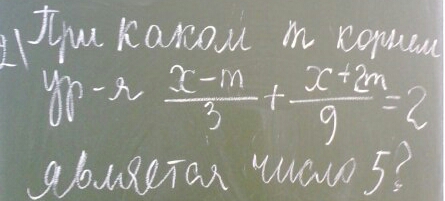 2) При каком m корнем
ур-я (x-m)/3 + (x+2m)/9 = 2
является число 5?